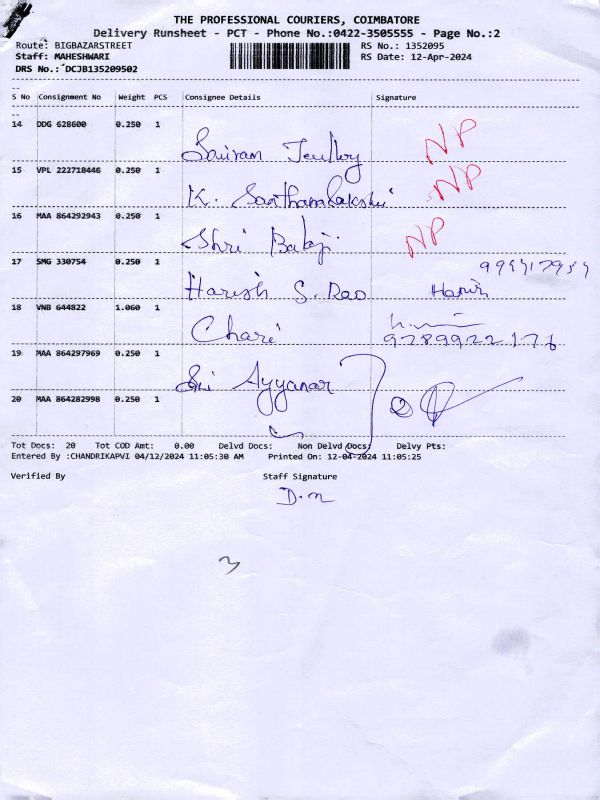 THE PROFESSIONAL COURIERS, COIMBATORE
Delivery Runsheet - PCT - Phone No.:0422-3505555 - Page No.:2
Route: BIGBAZARSTREET RS No.: 1352095
Staff: MAHESHWARI RS Date: 12-Apr-2024
DRS No.: DCJB135209502
S No Consignment No Weight PCS Consignee Details Signature
14 DDG 628600 0.250 1
Sairam NP
15 VPL 222718446 0.250 1
K. Santhanalakshmi NP
16 MAA 864292943 0.250 1
Shri Balaji NP
17 SMG 330754 0.250 1
Harish S. Rao Harish
18 VNB 644822 1.060 1
Chari 9789922176
19 MAA 864297969 0.250 1
Sri Ayyanar
20 MAA 864282998 0.250 1
Tot Docs: 20 Tot COD Amt: 0.00 Delvd Docs: Non Delvd Docs: Delvy Pts:
Entered By :CHANDRIKAPVI 04/12/2024 11:05:30 AM Printed On: 12-04-2024 11:05:25
Verified By Staff Signature
3